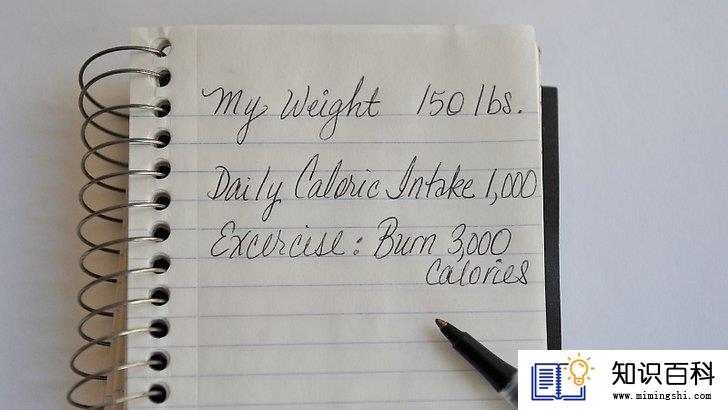 My Weight 150 lbs.
Daily Caloric Intake 1,000
Excercise: Burn 3,000
Calories
知识百科
www.mimingshi.com